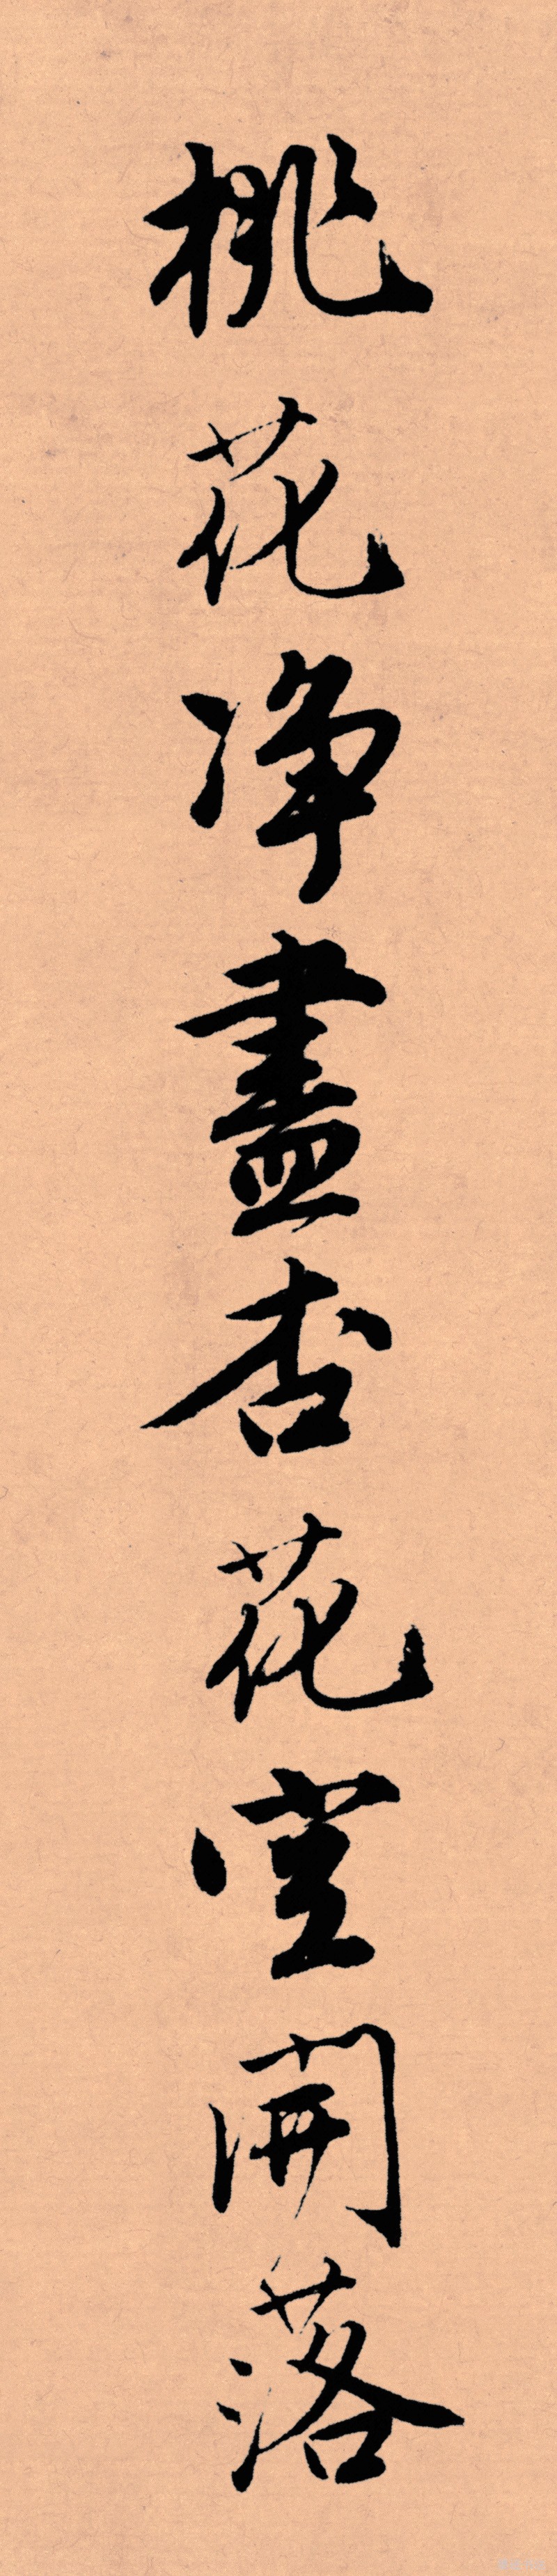 桃花净盡杏花空開落